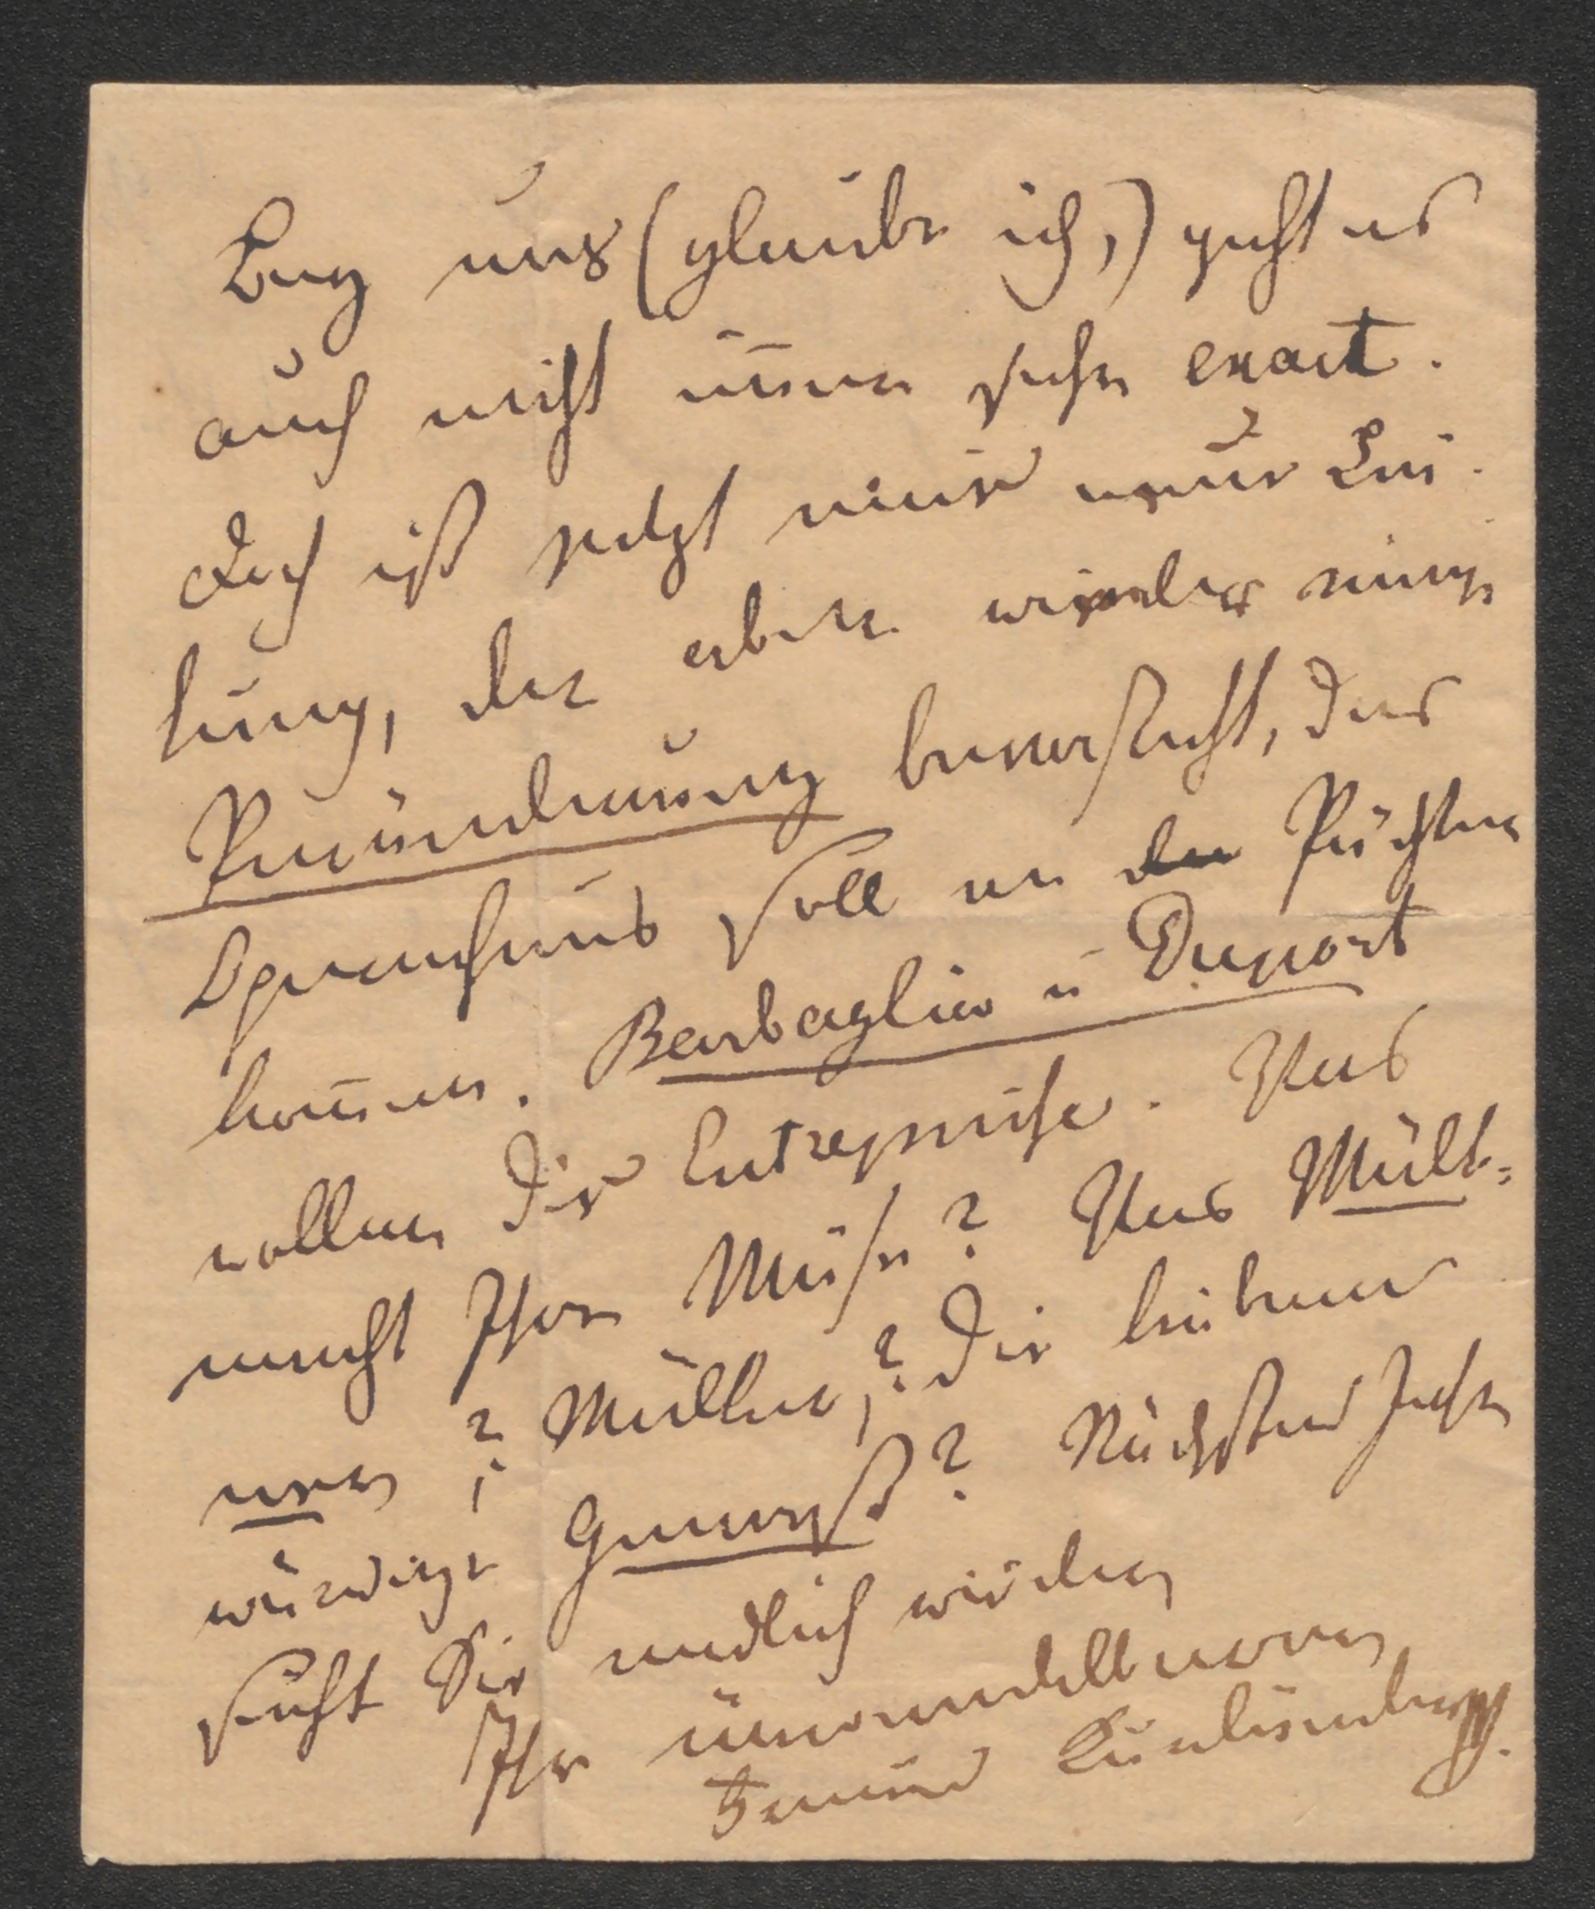 Bey uns (glaube ich,) geht es
auch nicht immer sehr exact.
Doch ist jetzt eine neue Lei-
tung, der aber wieder einige
Veränderung bevorsteht, das
Opernhaus soll an den Pächter
kommen. Barbaglia u Duport
wollen die Entreprise. Was
macht Ihre Muse? Was Müll-
ner? Müller? die liebens
würdige Genast? Nächstes Jahr
sieht Sie endlich wieder
Ihr unwandelbarer
Freund Kurländer